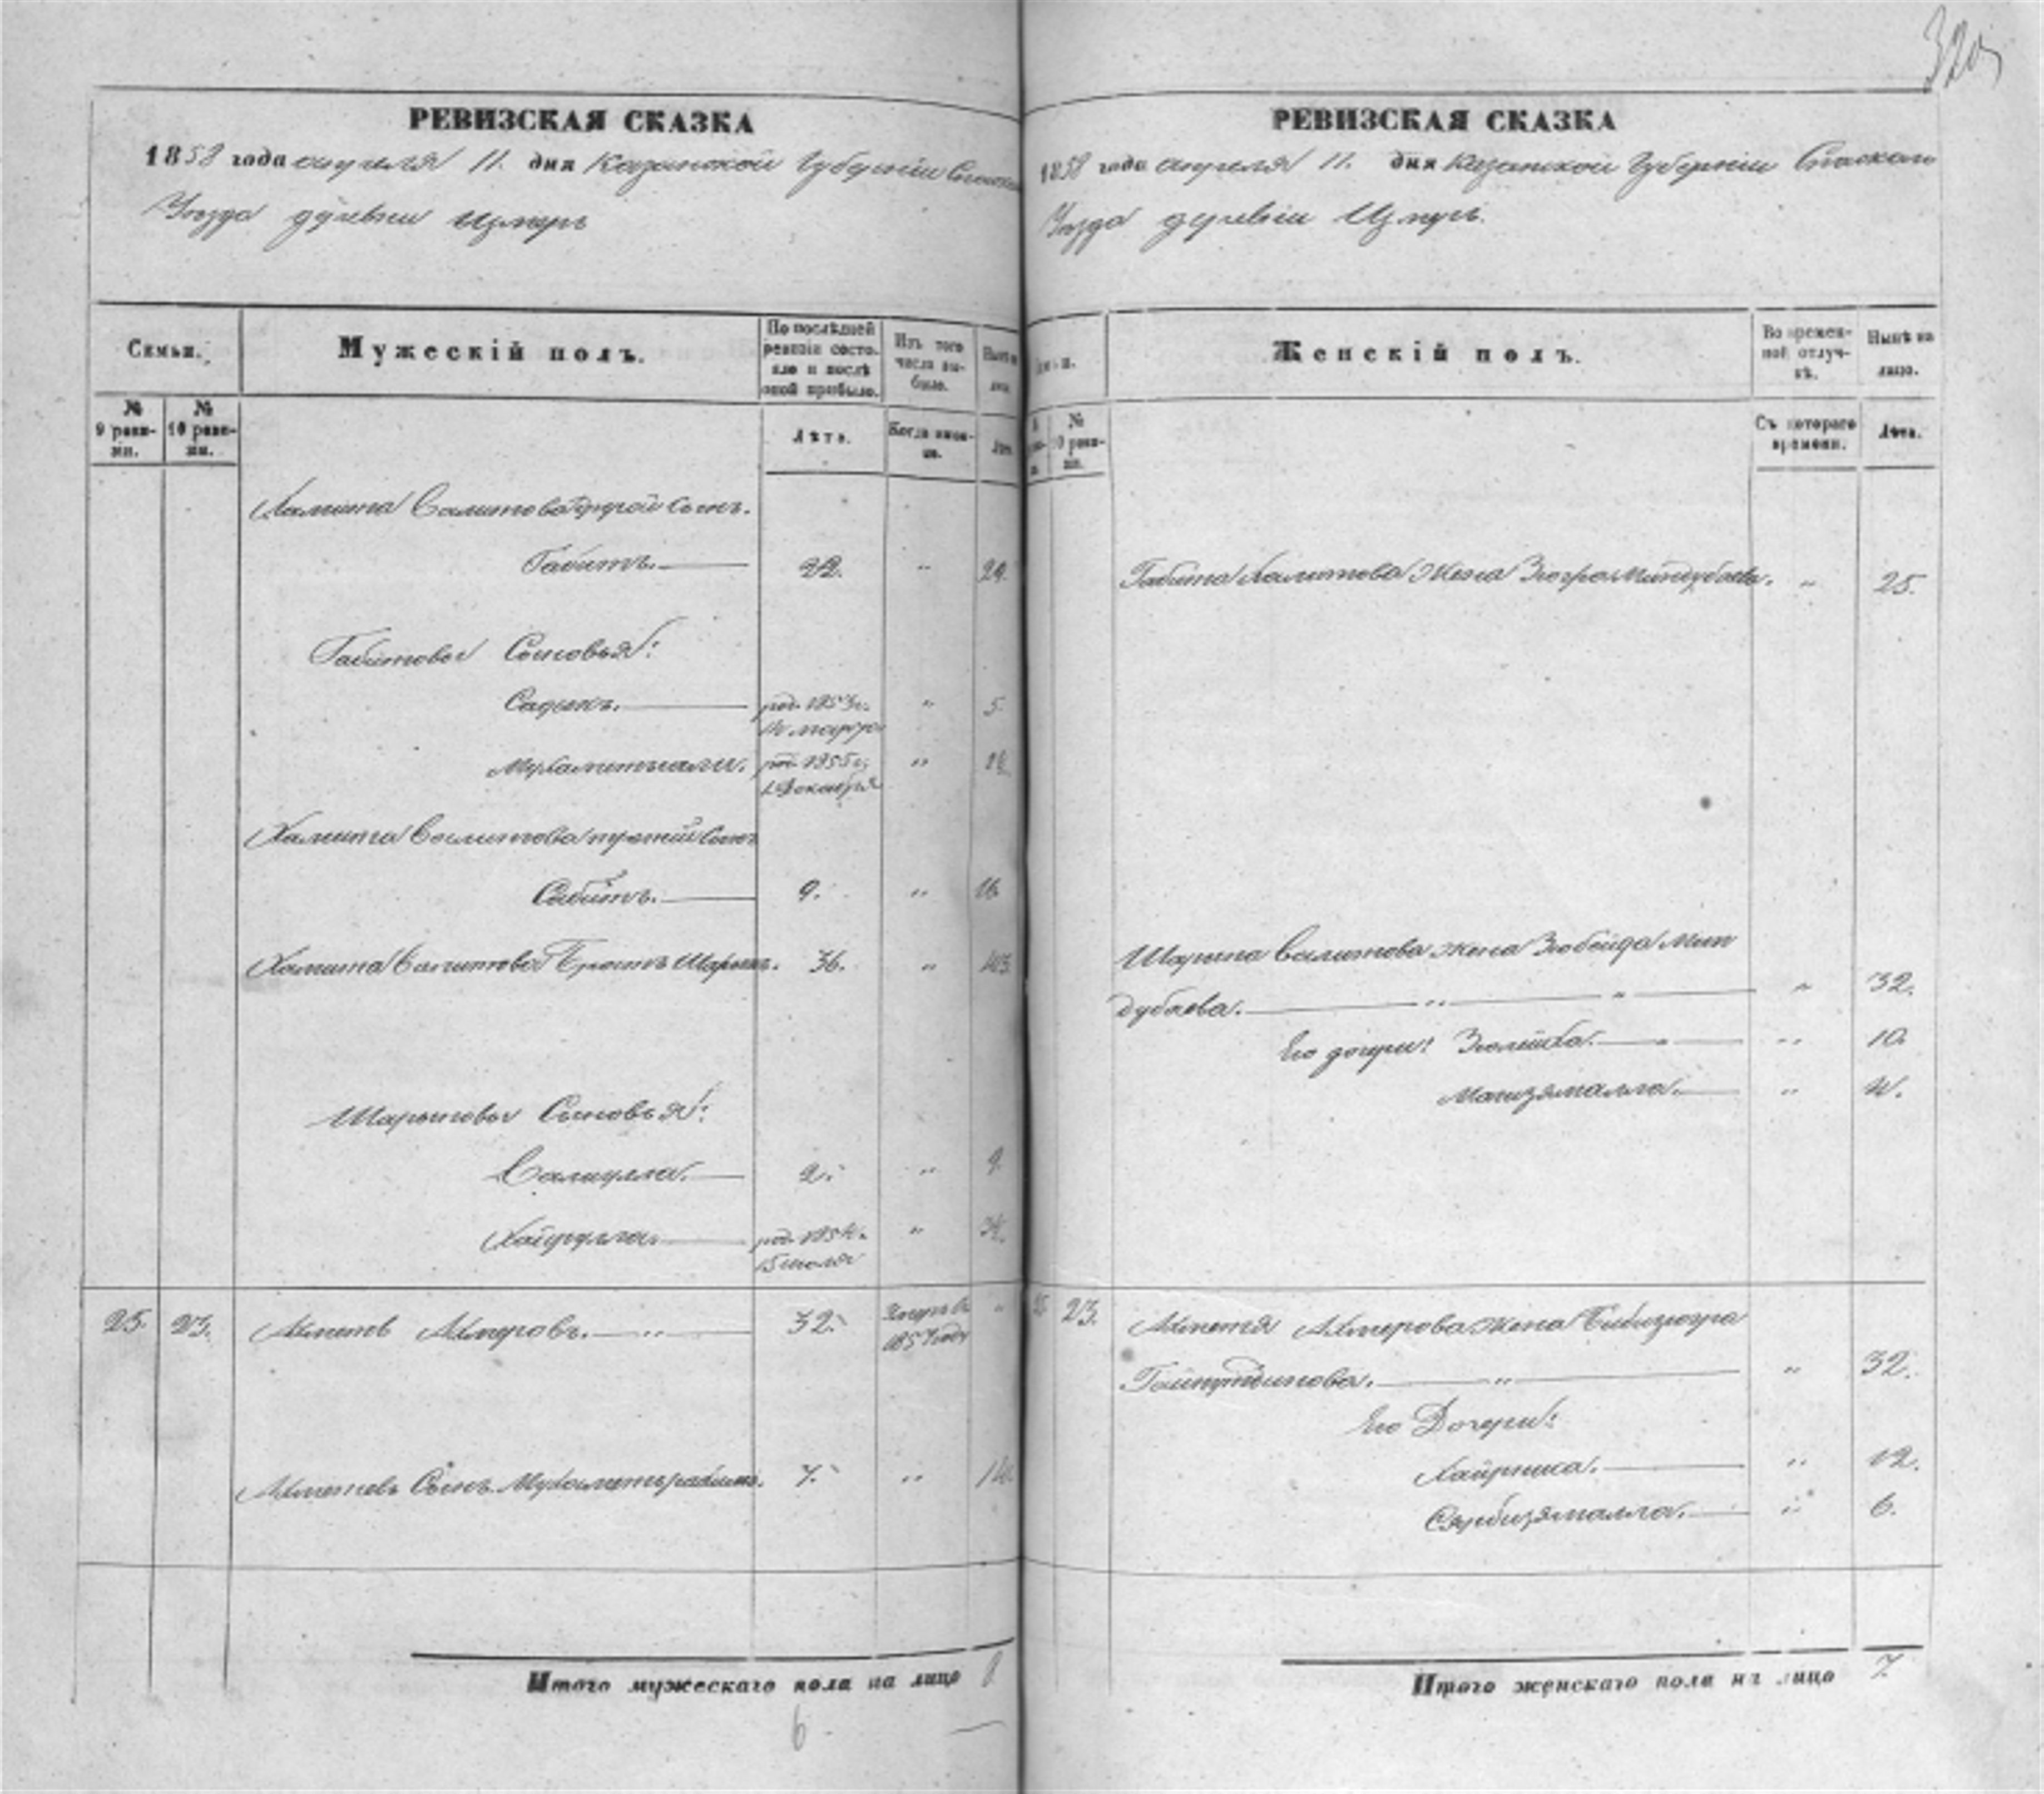 320
РЕВИЗСКАЯ СКАЗКА
1858 года апреля 11. дня Казанской Губерніи Спаскаго
Уѣзда деревни Измеръ
Семьи.
Мужескій полъ.
По послѣдней ревизіи состояло и послѣ оной прибыло.
Изъ того числа выбыло.
Нынѣ на лицо.
№ 9 ревизіи.
№ 10 ревизіи.
Лѣта.
Когда именно.
Лѣта.
Хамита Валитова другой сынъ.
Габитъ. 22. " 29.
Габитовы Сыновья:
Садыкъ. род. 1853 г. " 5.
марта
Мухаметгали. род. 1855 г. "
декабря
Хамита Валитова третій сынъ
Сабитъ. 9. " 16.
Хамита Валитова Братъ Шарыпъ. 36. " 43.
Шарыповы Сыновья:
Валиулла. 2. " 9.
Хайрулла. род. 1854 г. "
25. 23. Ахметъ Ахмеровъ. " 32. Умеръ въ "
1857 году
Ахметевъ Сынъ Мухаметьрахимъ. 7. " 14.
Итого мужескаго пола на лицо 8
6
РЕВИЗСКАЯ СКАЗКА
1858 года апреля 11. дня Казанской Губерніи Спаскаго
Уѣзда деревни Измеръ.
Женскій полъ.
Во временной отлучкѣ.
Нынѣ на лицо.
№ 10 ревизіи.
Съ котораго времени.
Лѣта.
Габита Хамитова Жена Зюгра Миндубаева. " 25.
Шарыпа Валитова жена Зюбейда Мин
дубаева. " " " 32.
Его дочери: Зюлейха. " " 10.
Магизямалла. " 4.
25 23. Ахметя Ахмерова жена Бибизюгра
Гайнутдинова. " " 32.
Его Дочери:
Хайрниса. " 12.
Сярбизямалла. " 6.
Итого женскаго пола на лицо 7.